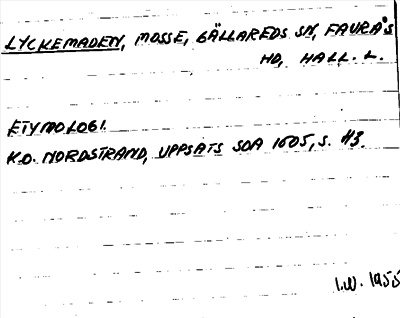 LYCKEMADEN, MOSSE, GÄLLAREDS SN, FAURÅS
HD, HALL. L.
ETYMOLOGI.
K.O. NORDSTRAND, UPPSATS SOA 1605, S. 43.
I.W. 1955